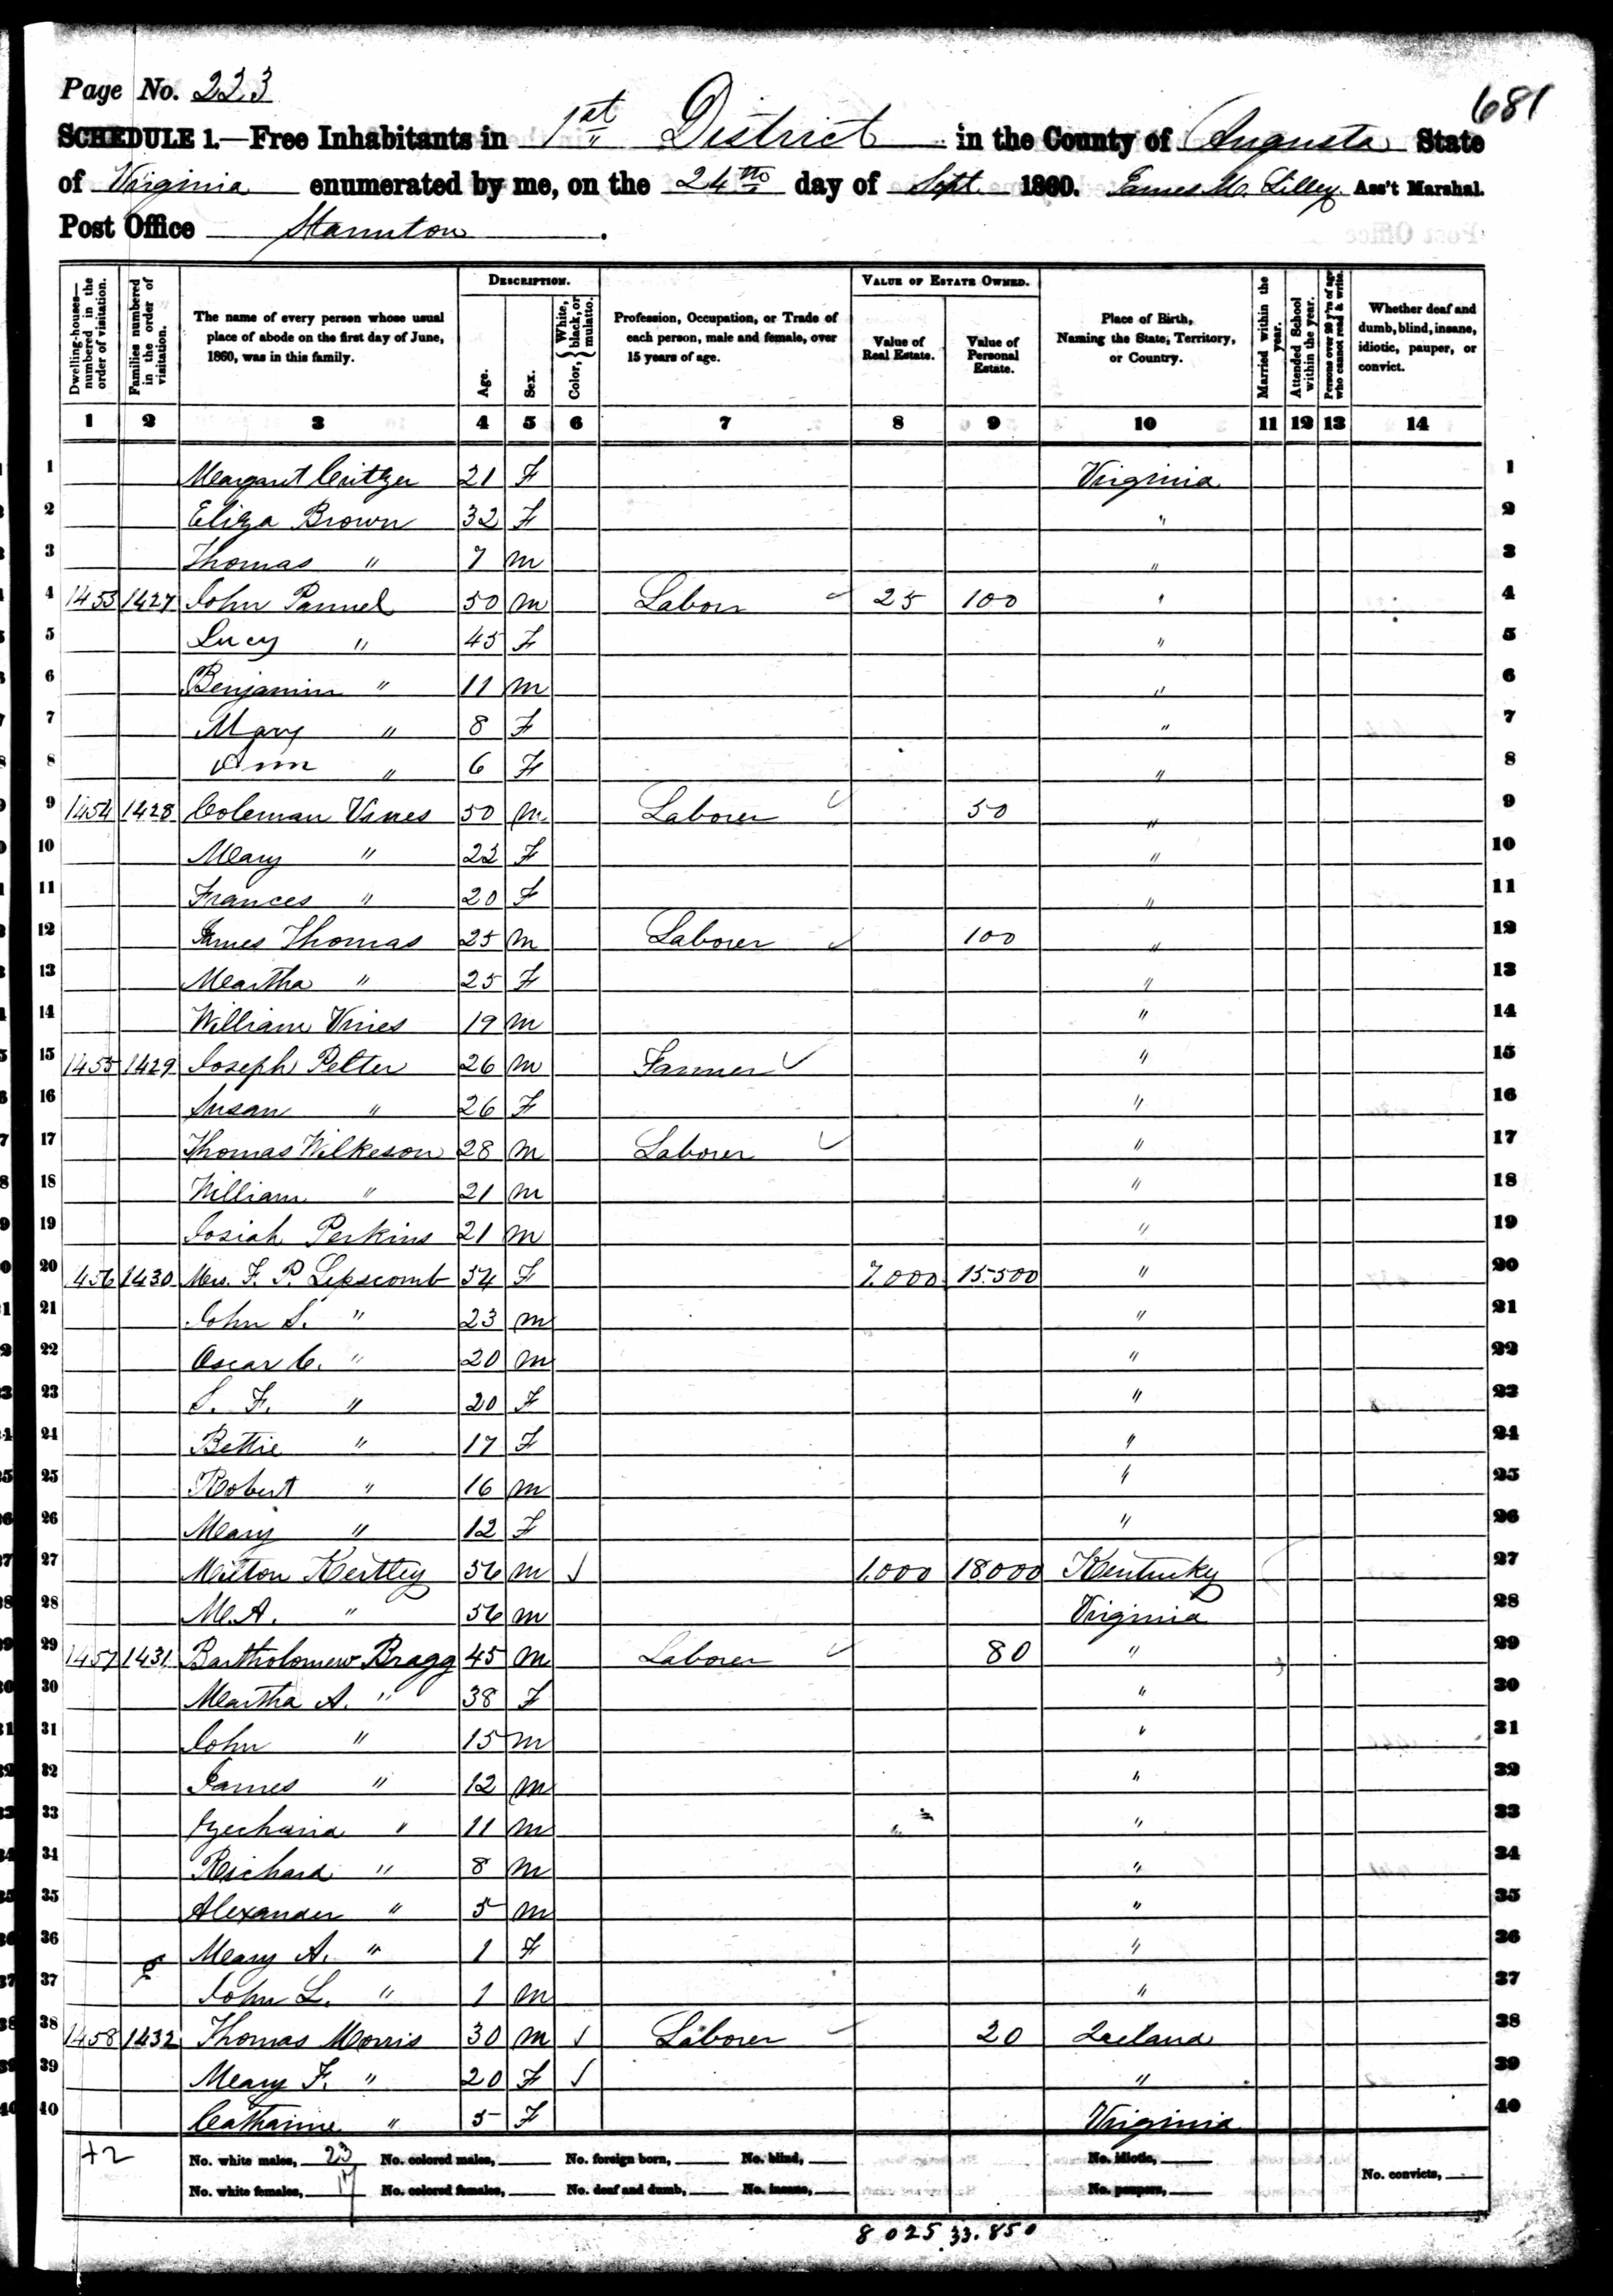 Page No. 223
681
SCHEDULE 1.—Free Inhabitants in 1st District in the County of Augusta State
of Virginia enumerated by me, on the 24th day of Sept. 1860. James M. Lilley Ass't Marshal.
Post Office Staunton
Dwelling-houses—numbered in the order of visitation. Families numbered in the order of visitation. The name of every person whose usual place of abode on the first day of June, 1860, was in this family. DESCRIPTION. Age. Sex. Color, White, black, or mulatto. Profession, Occupation, or Trade of each person, male and female, over 15 years of age. VALUE OF ESTATE OWNED. Value of Real Estate. Value of Personal Estate. Place of Birth, Naming the State, Territory, or Country. Married within the year. Attended School within the year. Persons over 20 y'rs of age who cannot read & write. Whether deaf and dumb, blind, insane, idiotic, pauper, or convict.
1 2 3 4 5 6 7 8 9 10 11 12 13 14
1 Margaret Critzer 21 F Virginia 1
2 Eliza Brown 32 F " 2
3 Thomas " 7 m " 3
4 1453 1427 John Pannel 50 m Labour 25 100 " 4
5 Lucy " 45 F " 5
6 Benjamin " 11 m " 6
7 Mary " 8 F " 7
8 Ann " 6 F " 8
9 1454 1428 Coleman Vines 50 m Laborer 50 " 9
10 Mary " 22 F " 10
11 Frances " 20 F " 11
12 James Thomas 25 m Laborer 100 " 12
13 Martha " 25 F " 13
14 William Vines 19 m " 14
15 1455 1429 Joseph Pelter 26 m Farmer " 15
16 Susan " 26 F " 16
17 Thomas Wilkeson 28 m Laborer " 17
18 William " 21 m " 18
19 Josiah Perkins 21 m " 19
20 1456 1430 Mrs. F. P. Lipscomb 54 F 7.000 15.500 " 20
21 John S. " 23 m " 21
22 Oscar C. " 20 m " 22
23 S. F. " 20 F " 23
24 Bettie " 17 F " 24
25 Robert " 16 m " 25
26 Mary " 12 F " 26
27 Milton Kertley 56 m 1.000 18000 Kentucky 27
28 M. A. " 56 m Virginia 28
29 1457 1431 Bartholomew Bragg 45 m Laborer 80 " 29
30 Martha A. " 38 F " 30
31 John " 15 m " 31
32 James " 12 m " 32
33 " 11 m " 33
34 Richard " 8 m " 34
35 Alexander " 5 m " 35
36 Mary A. " 1 F " 36
37 John L. " 1 m " 37
38 1458 1432 Thomas Morris 30 m Laborer 20 Ireland 38
39 Mary F. " 20 F " 39
40 Catharine " 5 F Virginia 40
+2 No. white males, 23 No. colored males, No. foreign born, No. blind, No. idiotic,
No. white females, 17 No. colored females, No. deaf and dumb, No. insane, No. paupers, No. convicts,
8025 33.850